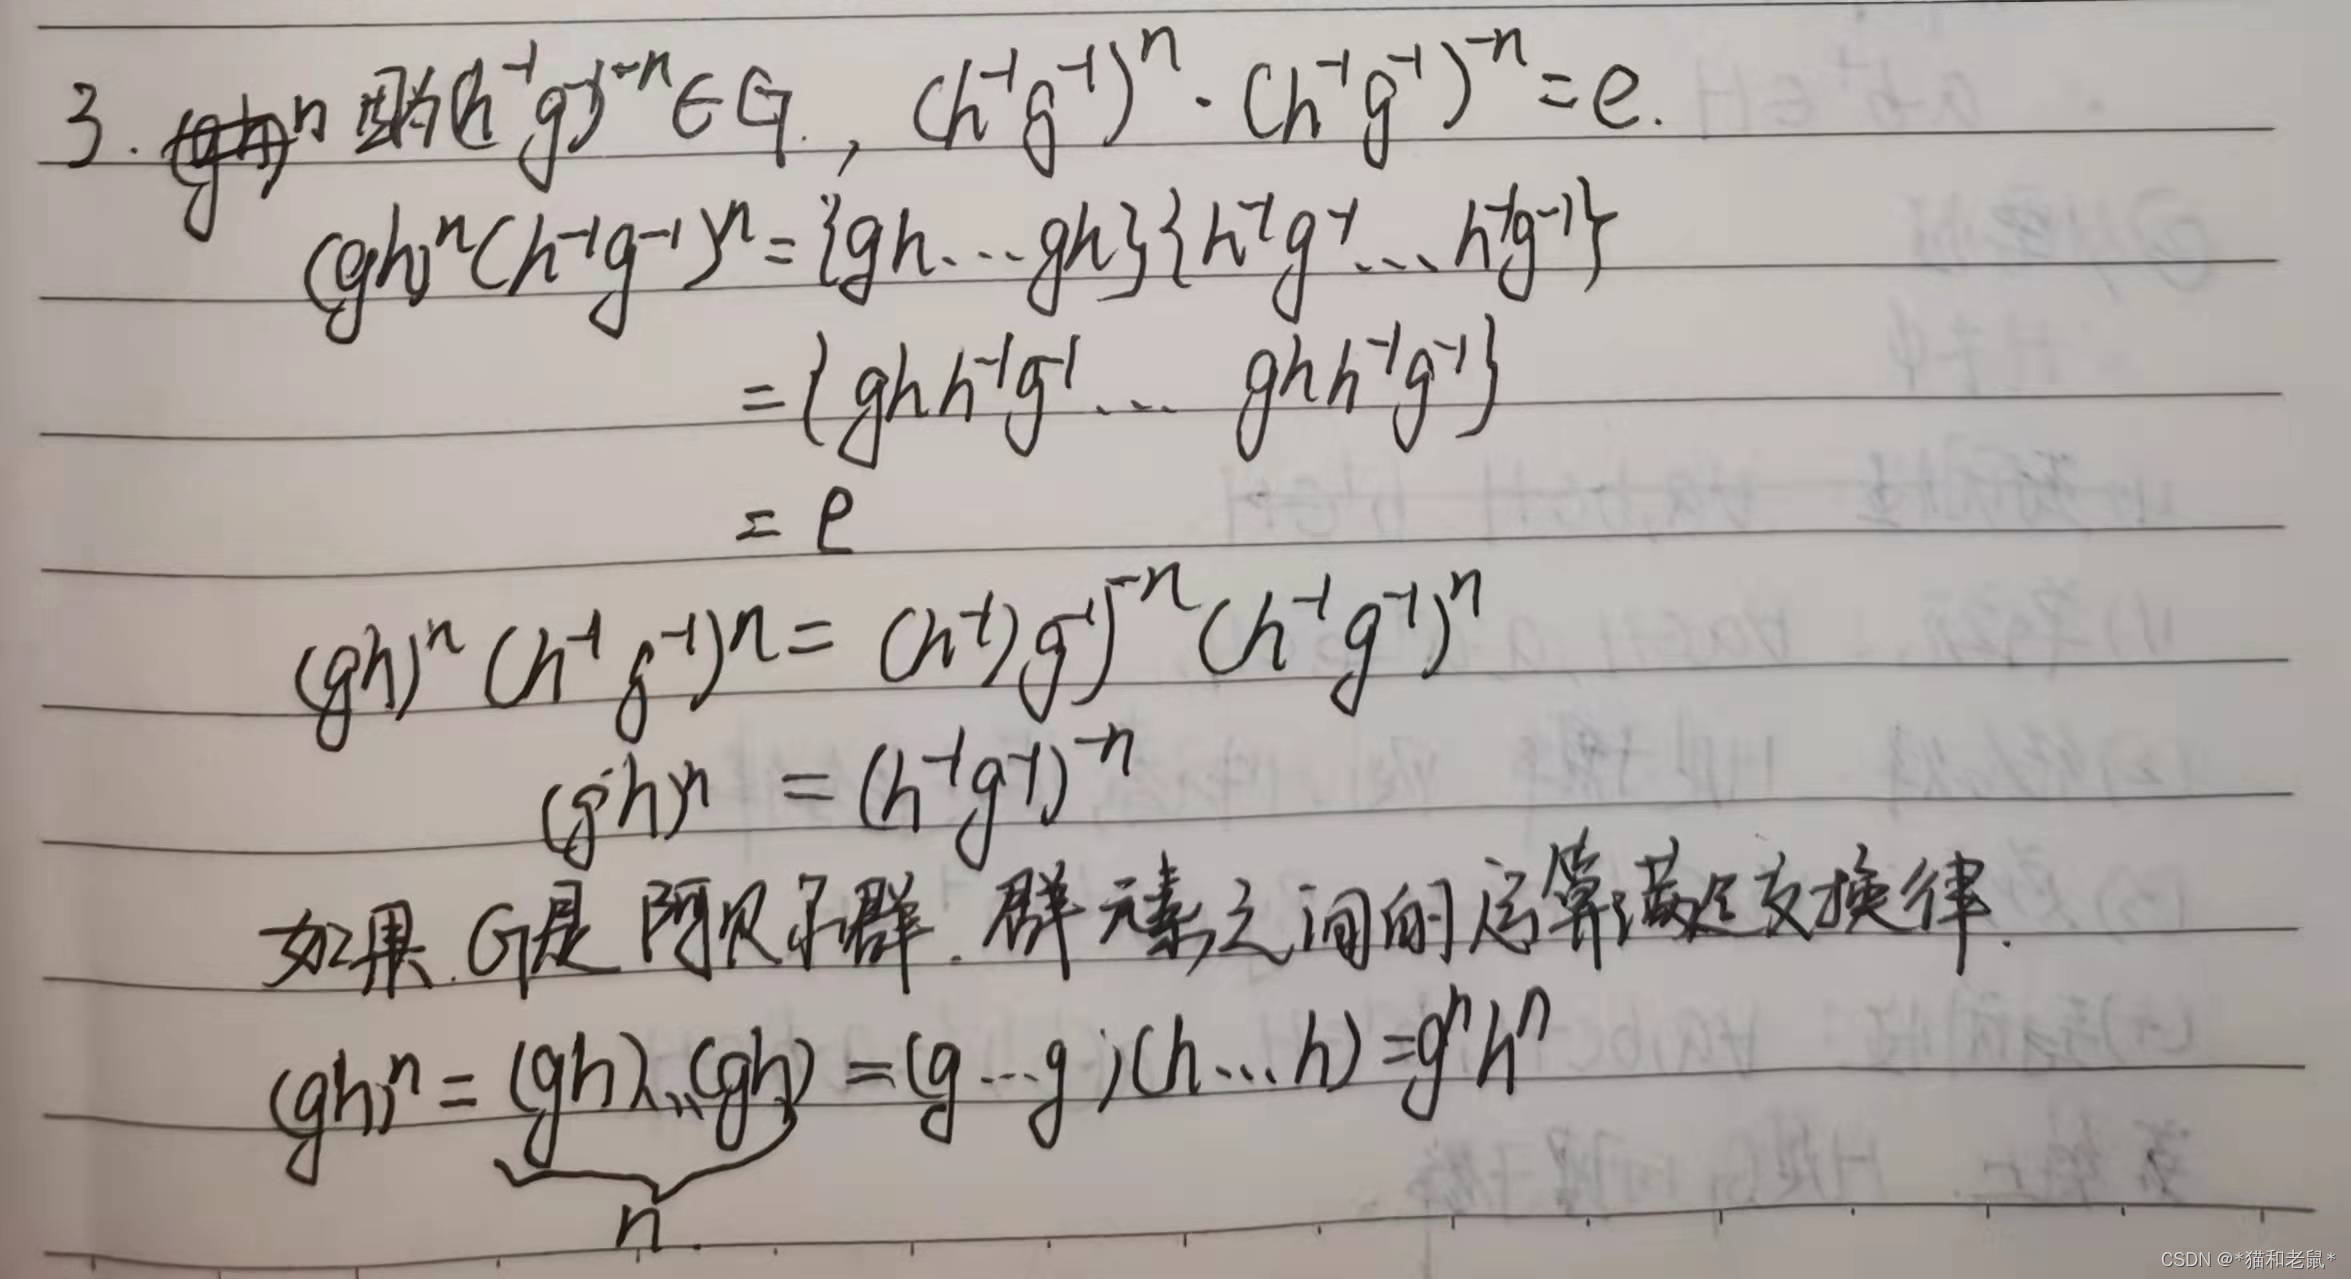 3. 因为(h⁻¹g⁻¹)⁻ⁿ∈G., (h⁻¹g⁻¹)ⁿ·(h⁻¹g⁻¹)⁻ⁿ=e.
(gh)ⁿ(h⁻¹g⁻¹)ⁿ={gh...gh}{h⁻¹g⁻¹...h⁻¹g⁻¹}
={ghh⁻¹g⁻¹... ghh⁻¹g⁻¹}
=e
(gh)ⁿ(h⁻¹g⁻¹)ⁿ=(h⁻¹)g⁻¹)⁻ⁿ(h⁻¹g⁻¹)ⁿ
(gh)ⁿ=(h⁻¹g⁻¹)⁻ⁿ
如果.G是阿贝尔群.群元素之间的运算满足交换律.
(gh)ⁿ=(gh)...(gh)=(g...g)(h...h)=gⁿhⁿ
n.
CSDN @*猫和老鼠*